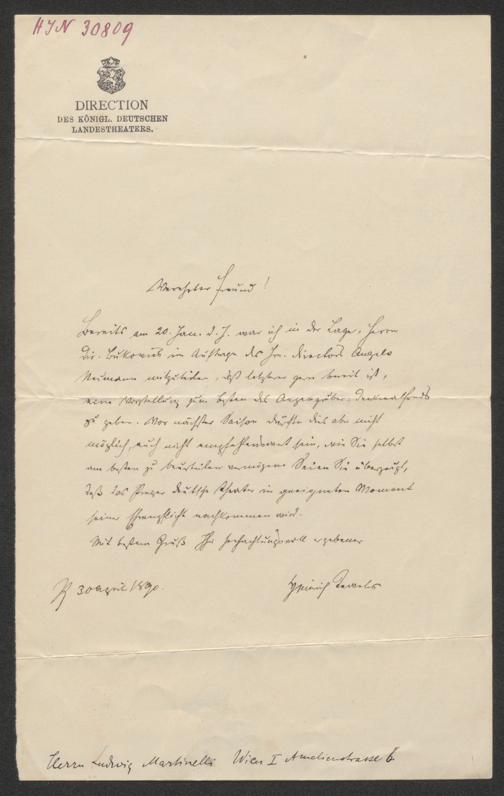 HIN 30809
DIRECTION
DES KÖNIGL. DEUTSCHEN
LANDESTHEATERS.
Verehrter Freund!
Bereits am 20. Jan. d. J. war ich in der Lage, Herrn
Dr. im Auftrage des Hr. Directors Angelo
Neumann mitzutheilen, daß letzterer gern bereit ist,
eine Vorstellung zum Besten des Anzengruber-Denkmalfonds
zu geben. Vor nächster Saison dürfte dies aber nicht
möglich, auch nicht empfehlenswert sein, wie Sie selbst
am besten zu beurteilen vermögen. Seien Sie überzeugt,
daß das Prager deutsche Theater im geeigneten Moment
seiner Ehrenpflicht nachkommen wird.
Mit bestem Gruß Ihr hochachtungsvoll ergebener
30 April 1890.
Heinrich Teweles
Herrn Ludwig Martinelli Wien I Amelienstrasse